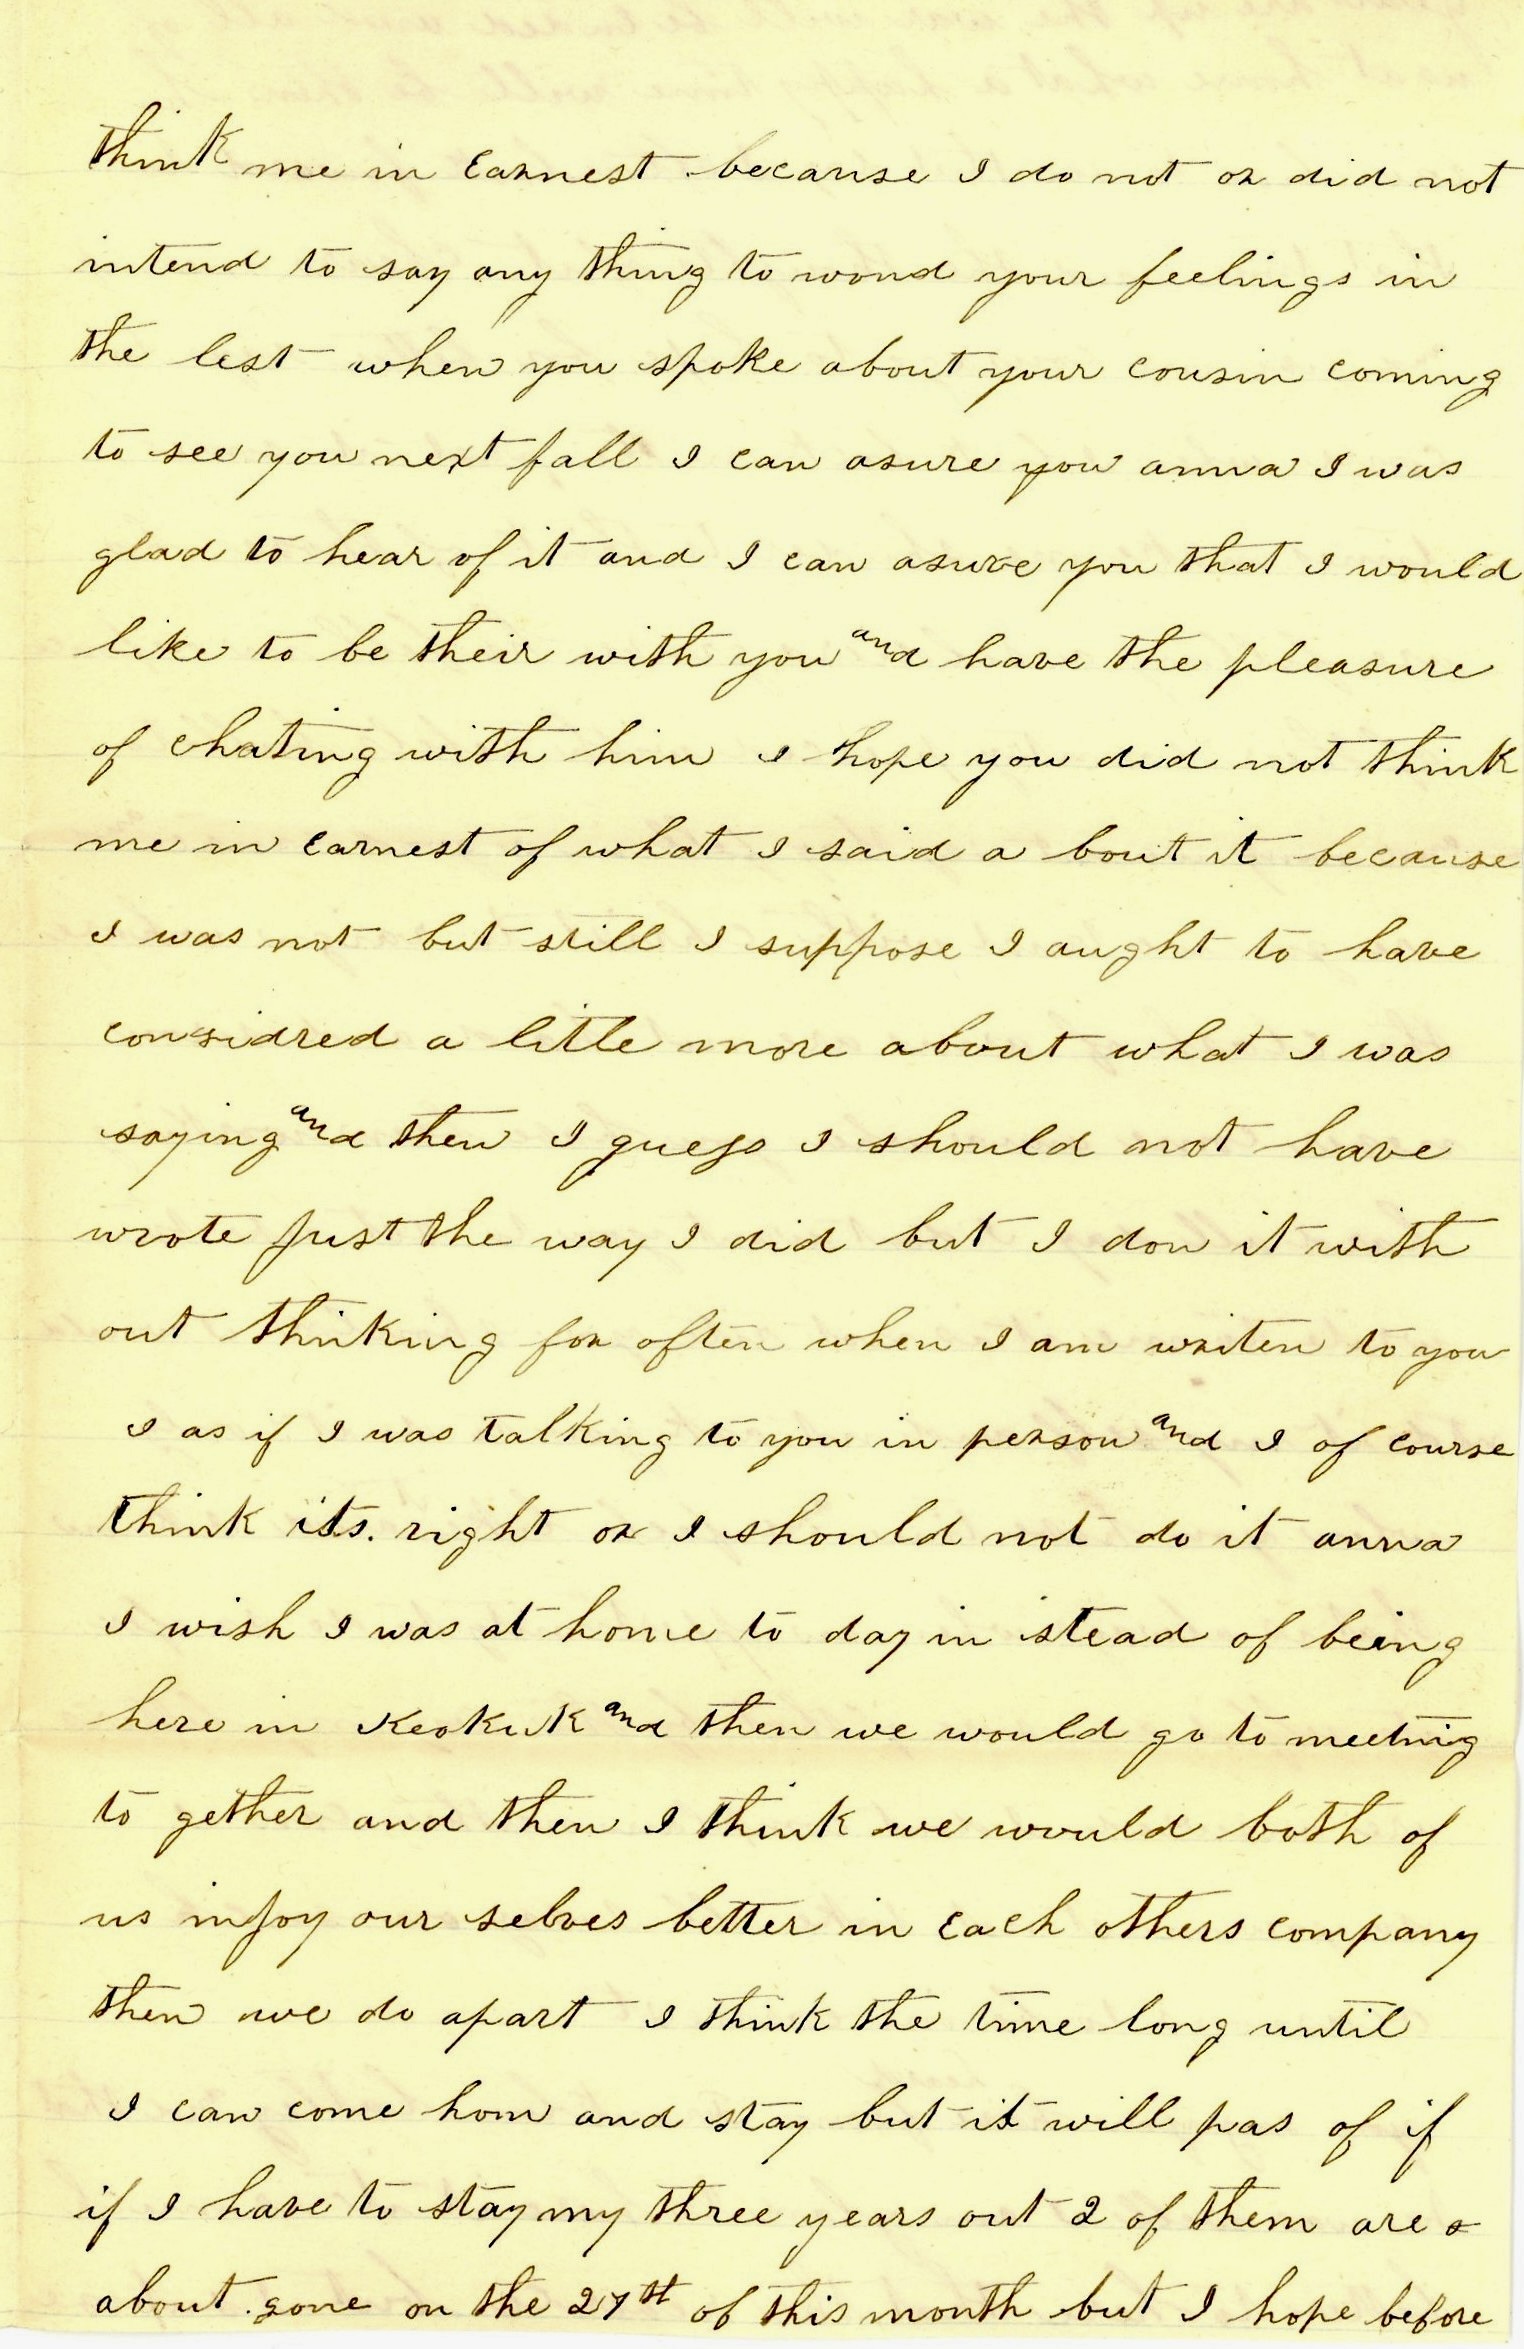 think me in earnest because I do not or did not
intend to say any thing to wond your feelings in
the lest when you spoke about your cousin coming
to see you next fall I can asure you anna I was
glad to hear of it and I can asure you that I would
like to be their with you and have the pleasure
of chating with him I hope you did not think
me in earnest of what I said a bout it because
I was not but still I suppose I aught to have
considred a little more about what I was
saying and then I guess I should not have
wrote just the way I did but I don it with
out thinking for often when I am writen to you
I as if I was talking to you in person and I of course
think its. right or I should not do it anna
I wish I was at home to day in stead of being
here in Keokuk and then we would go to meeting
to gether and then I think we would both of
us injoy our selves better in each others company
then we do apart I think the time long until
I can come hom and stay but it will pas of if
if I have to stay my three years out 2 of them are
about gone on the 27st of this month but I hope before